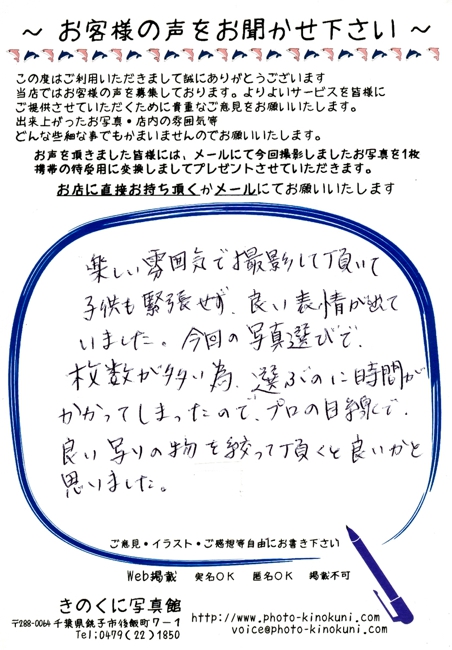 ～ お客様の声をお聞かせ下さい ～
この度はご利用いただきまして誠にありがとうございます
当店ではお客様の声を募集しております。よりよいサービスを皆様に
ご提供させていただくために貴重なご意見をお願いいたします。
出来上がったお写真・店内の雰囲気等
どんな些細な事でもかまいませんのでお願いいたします。
お声を頂きました皆様には、メールにて今回撮影しましたお写真を1枚
携帯の待受用に変換しましてプレゼントさせていただきます。
お店に直接お持ち頂くかメールにてお願いいたします
楽しい雰囲気で撮影して頂いて
子供も緊張せず、良い表情が出て
いました。今回の写真選びで、
枚数が多い為、選ぶのに時間が
かかってしまったので、プロの目線で、
良い写りの物を絞って頂くと良いかと
思いました。
ご意見・イラスト・ご感想等自由にお書き下さい
Web掲載 実名OK 匿名OK 掲載不可
きのくに写真館
〒288-0064 千葉県銚子市後飯町7－1
Tel:0479(22)1850
http://www.photo-kinokuni.com/
voice@photo-kinokuni.com